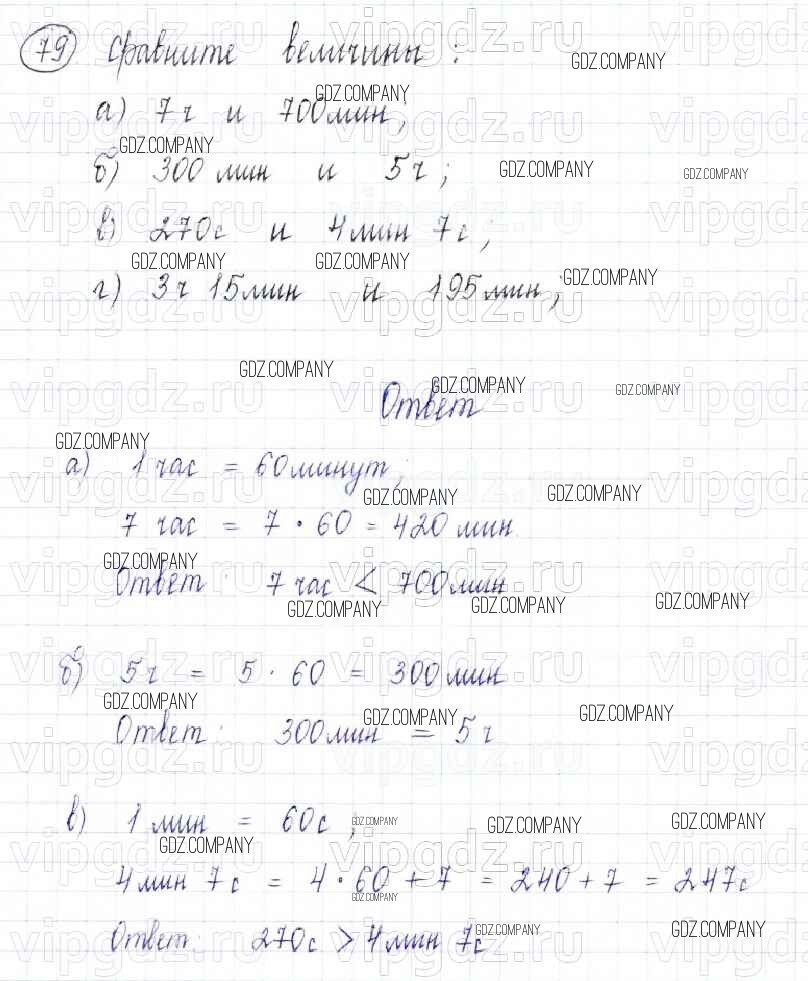 79 Сравните величины:
а) 7 ч и 700 мин;
б) 300 мин и 5 ч;
в) 270 с и 4 мин 7 с;
г) 3 ч 15 мин и 195 мин;
Ответ
а) 1 час = 60 минут;
7 час = 7 · 60 = 420 мин
Ответ: 7 час < 700 мин
б) 5 ч = 5 · 60 = 300 мин
Ответ: 300 мин = 5 ч
в) 1 мин = 60 с;
4 мин 7 с = 4 · 60 + 7 = 240 + 7 = 247 с
Ответ: 270 с > 4 мин 7 с